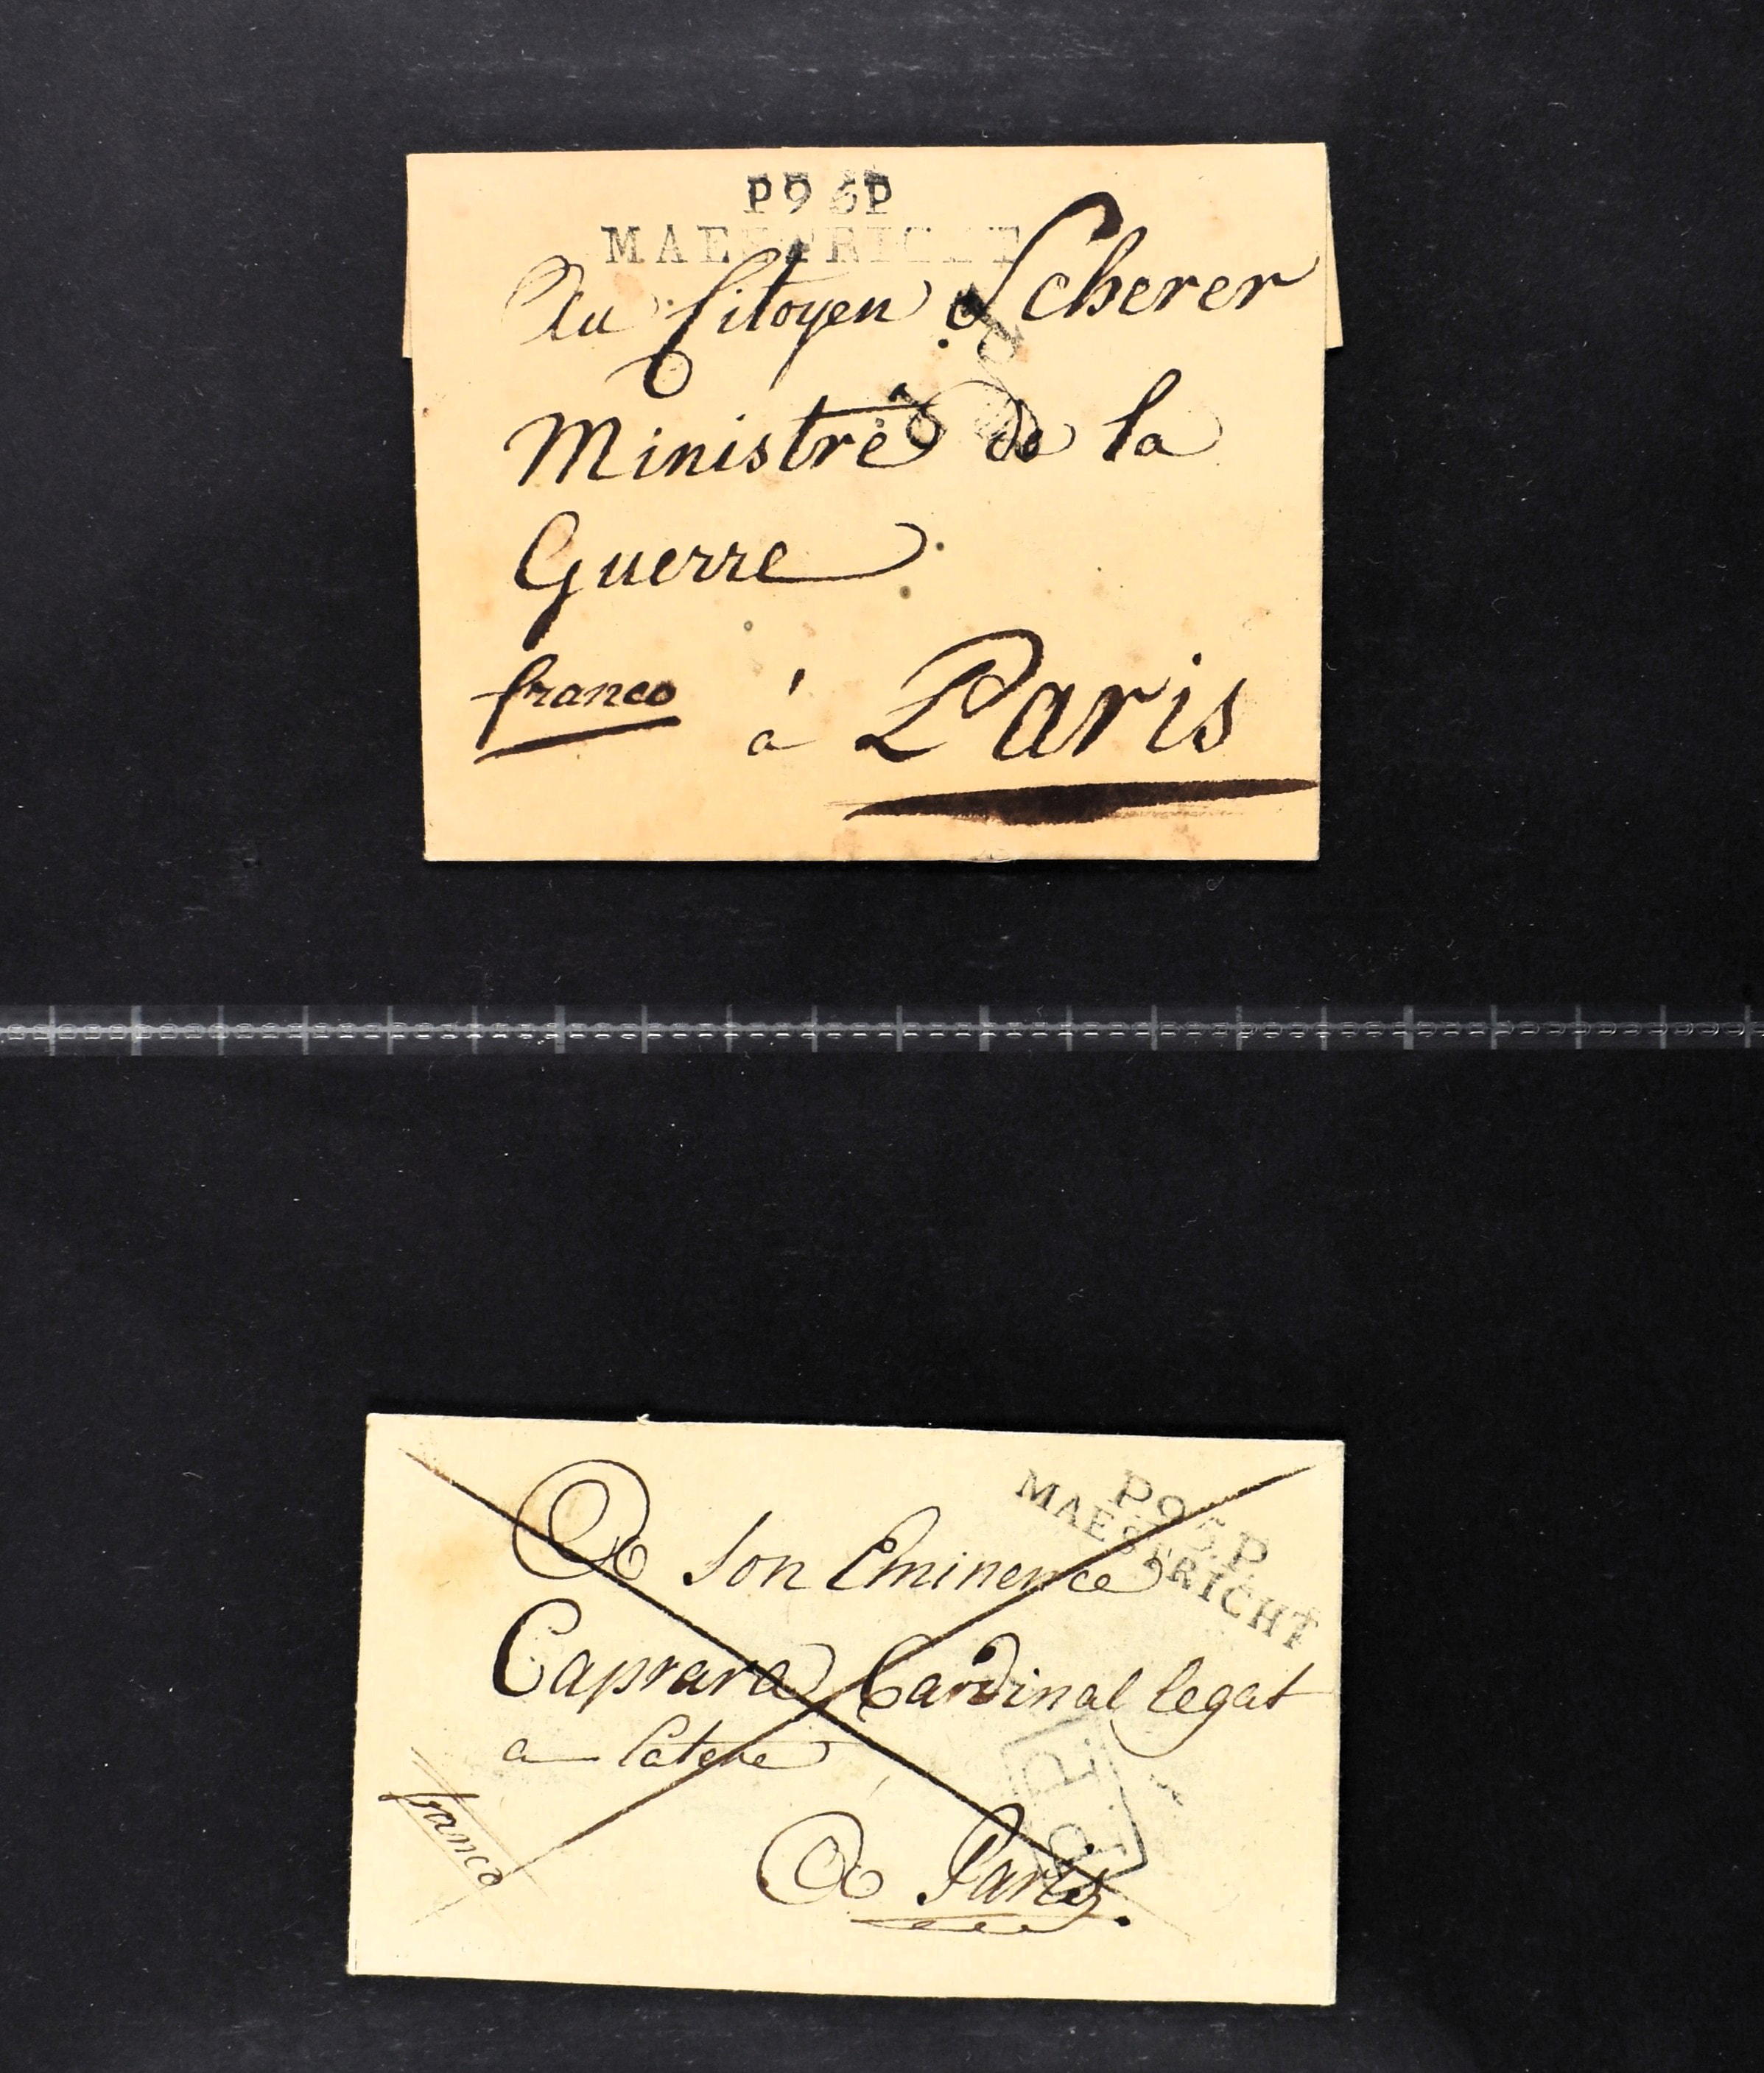 P95P
MAESTRICHT
Au Citoyen Scherer
Ministre de la
Guerre
franco à Paris
P.95.P.
MAESTRICHT
A Son Eminence
Caprara Cardinal legat
a Latere
P.P.
franco
A Paris.